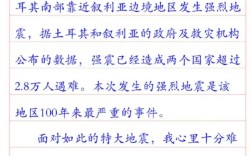 耳其南部靠近叙利亚边境地区发生强烈地
震，据土耳其和叙利亚的政府及救灾机构
公布的数据，强震已经造成两个国家超过
2.8万人遇难。本次发生的强烈地震是该
地区100年来最严重的事件。
面对如此的特大地震，我心里十分难